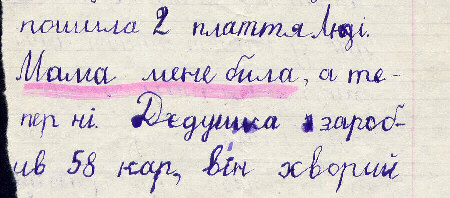 пошила 2 платтяЛюді.
Мама мене била, а те-
пер ні. Дєдушка зароб-
ив 58 кар, він хворий